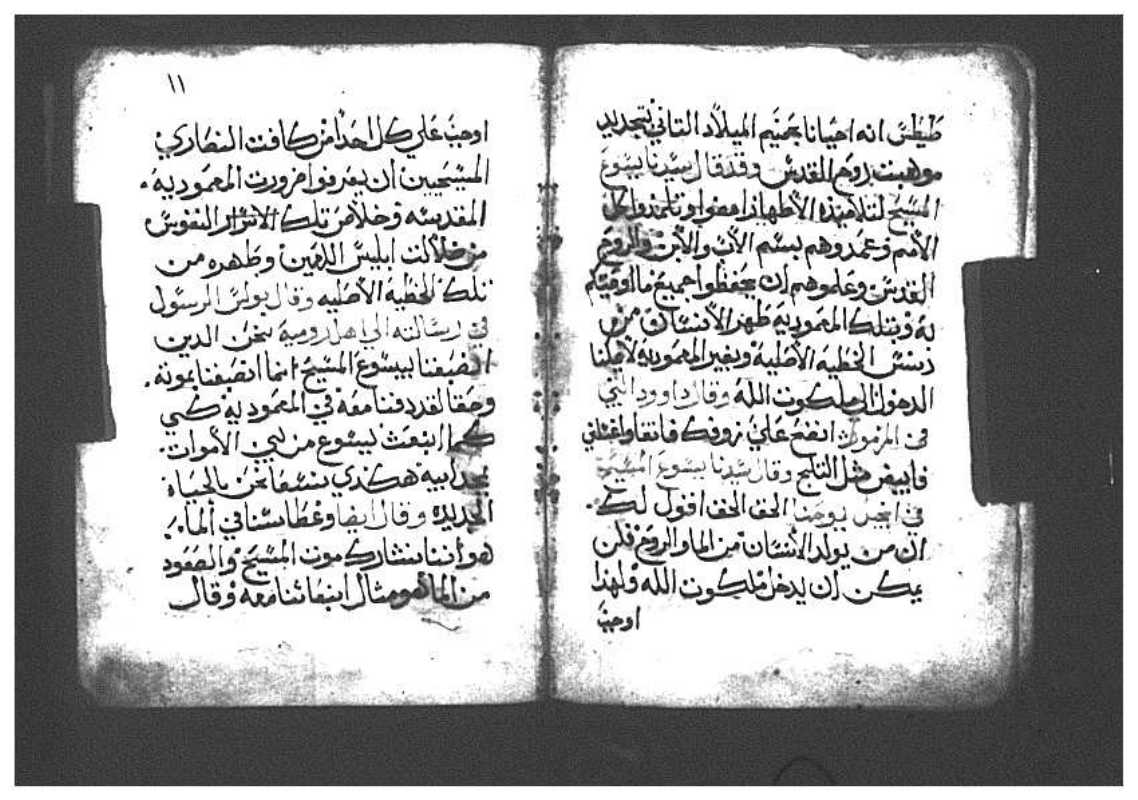 طيطس انه احيانا بحميم الميلاد التاني بتجديد
موهبت روح القدس وقد قال سيدنا يسوع
المسيح لتلاميذه الأطهار امضوا وتلمذوا كل
الأمم وعمدوهم بسم الأب والأبن والروح
القدس وعلموهم ان يحفظوا جميع ما اوصيتكم
به وبتلك المعموديه طهر الأنسان من
دنس الخطيه الأصليه وبغير المعموديه لا يمكنا
الدخول الي ملكوت الله وقال داوود النبي
في المزمور انضح علي زوفك فانقا واغسلني
فابيض مثل التلج وقال سيدنا يسوع المسيح
في انجيل يوحنا الحق الحق اقول لك
ان من يولد الأنسان من الما والروح فلن
يمكن ان يدخل ملكوت الله ولهذا
اوجب
١١
اوجب علي كل احد من كافت النصاري
المسيحيين أن يعرفوا ضرورت المعموديه
المقدسه وخلاص تلك الاسرار النفوس
من ضلالت ابليس اللعين وطهره من
تلك الخطيه الأصليه وقال بولس الرسول
في رسالته الي اهل روميه نحن الدين
انصبغنا بيسوع المسيح انما انصبغنا بموته
وحقا لقد دفنا معه في المعموديه كي
كما انبعث يسوع من بين الأموات
بمجد ابيه هكدي نسعا نحن بالحياة
الجديده وقال ايضا وغطاسنا في الما
هو أننا نشارك موت المسيح والصعود
من الما هو مثال انبعاثنا معه وقال